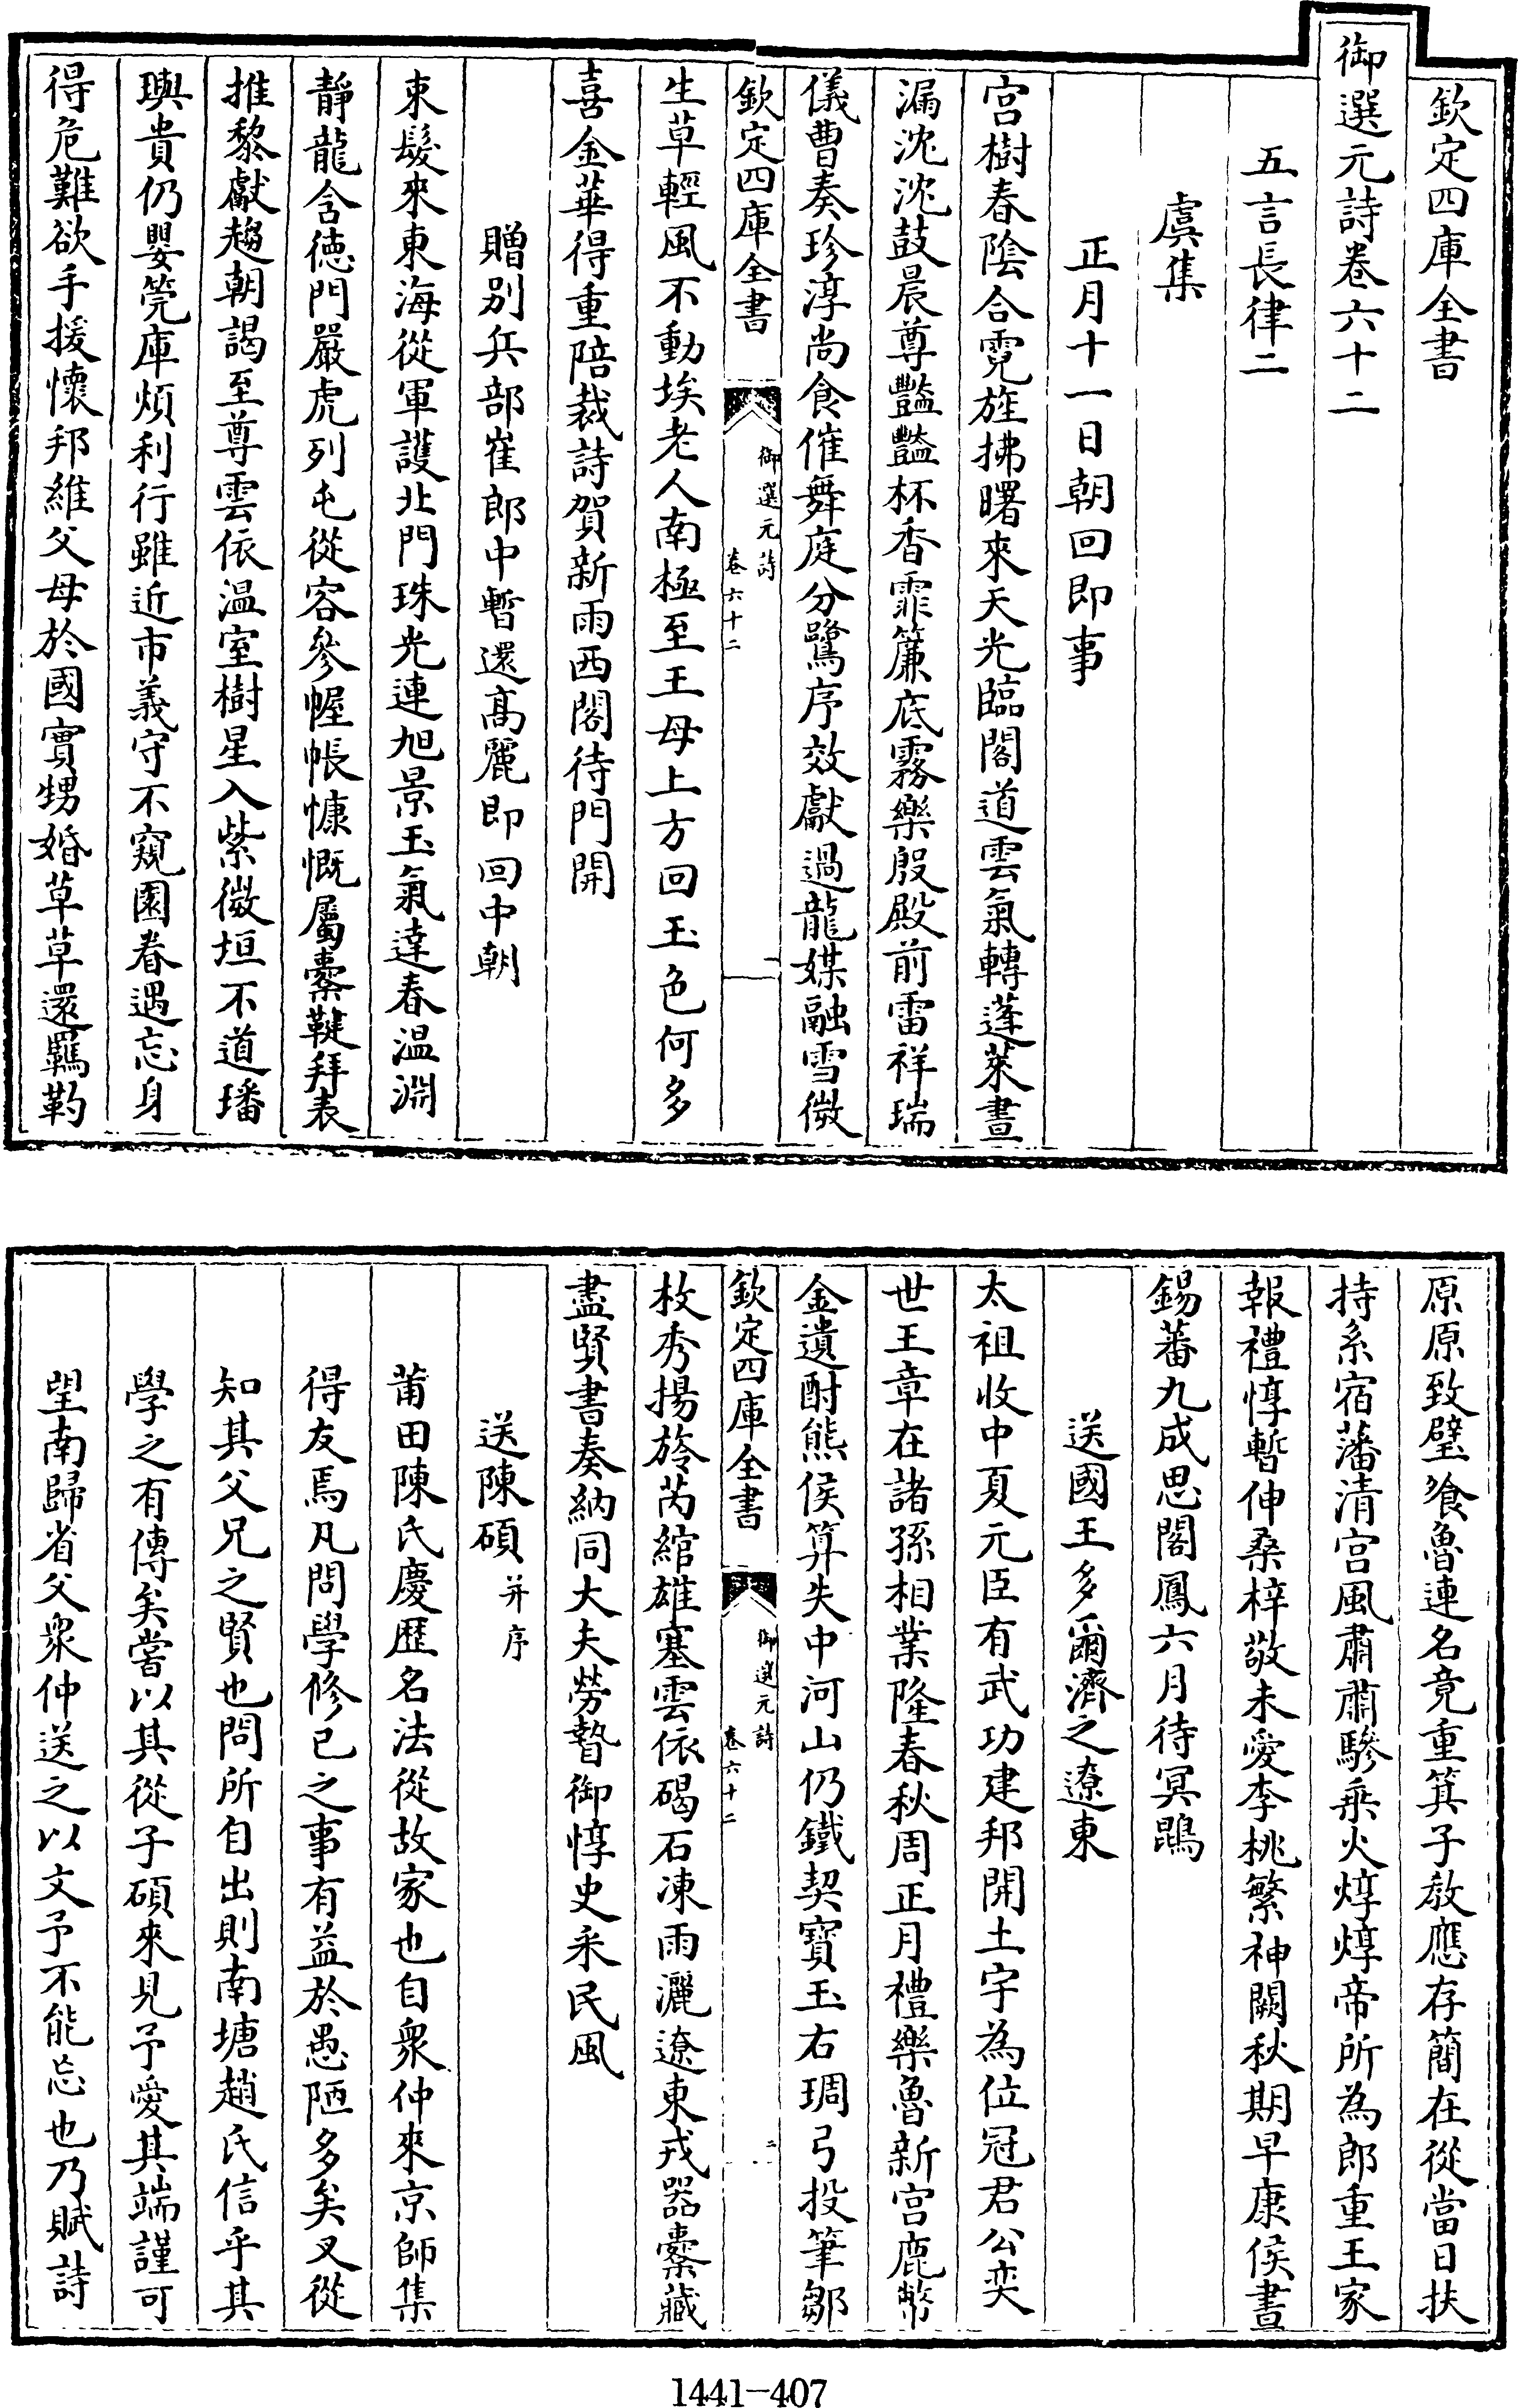 欽定四庫全書
御選元詩卷六十二
五言長律二
虞集
正月十一日朝回即事
宮樹春陰合霓旌拂曙來天光臨閣道雲氣轉蓬萊晝
漏沈沈鼓晨尊豔豔杯香霏簾底霧樂殷殿前雷祥瑞
儀曹奏珍淳尚食催舞庭分鷺序效獻過龍媒融雪微
欽定四庫全書
御選元詩
卷六十二
一
生草輕風不動埃老人南極至王母上方回玉色何多
喜金華得重陪裁詩賀新雨西閣待門開
贈別兵部崔郎中暫還高麗即回中朝
束髮來東海從軍護北門珠光連旭景玉氣達春温淵
靜龍含徳門嚴虎列屯從容參幄帳慷慨屬櫜鞬拜表
推黎獻趨朝謁至尊雲依温室樹星入紫微垣不道璠
璵貴仍嬰筦庫煩利行雖近市義守不窺園眷遇忘身
得危難欲手援懷邦維父母於國實甥婚草草還羈靮
原原致璧飧魯連名竟重箕子教應存簡在從當日扶
持系宿藩清宫風肅肅驂乗火焞焞帝所為郎重王家
報禮惇暫伸桑梓敬未愛李桃繁神闕秋期早康侯晝
錫蕃九成思閣鳳六月待冥鵾
送國王多爾濟之遼東
太祖收中夏元臣有武功建邦開土宇為位冠君公奕
世王章在諸孫相業隆春秋周正月禮樂魯新宫鹿幣
金遺酎熊侯算失中河山仍鐵契寶玉右琱弓投筆鄒
欽定四庫全書
御選元詩
卷六十二
二
枚秀揚旍芮綰雄塞雲依碣石凍雨灑遼東戎器櫜藏
盡賢書奏納同大夫勞暬御惇史采民風
送陳碩 并序
莆田陳氏慶歴名法從故家也自衆仲來京師集
得友焉凡問學修已之事有益於愚陋多矣又從
知其父兄之賢也問所自出則南塘趙氏信乎其
學之有傳矣嘗以其從子碩來見予愛其端謹可
望南歸省父衆仲送之以文予不能忘也乃賦詩
1441-407